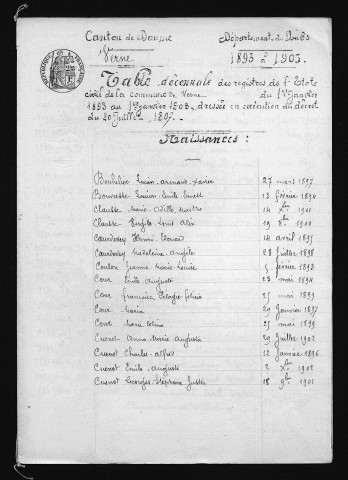 Canton de
Département du Doubs
Verne
1893 à 1903.
Table décennale des registres de l'État
civil de la commune de Verne du 1er Janvier
1893 au 1er janvier 1903, dressée en exécution du décret
du 20 Juillet 1807.
Naissances:
Louis Armand Xavier 27 mars 1897
Louise Emile Ernest 13 février 1894
Clausse Marie Odille Marthe 14 Xbre 1901
Clausse Louis Albin 19 8bre 1900
Henri Edouard 14 avril 1895
Madeleine Angèle 28 juillet 1898
Coulon Jeanne Marie Louise 5 février 1893
Cour Emile Auguste 23 mai 1894
Cour Pélagie Félicie 25 mai 1899
Cour Maria 29 Janvier 1897
Cour Marie 25 mai 1899
Cuenot Anna Marie Augusta 29 Juillet 1902
Cuenot Charles Alfred 12 Janvier 1896
Cuenot Emile Auguste 2 Xbre 1902
Cuenot Georges Stéphane Juste 18 9bre 1901